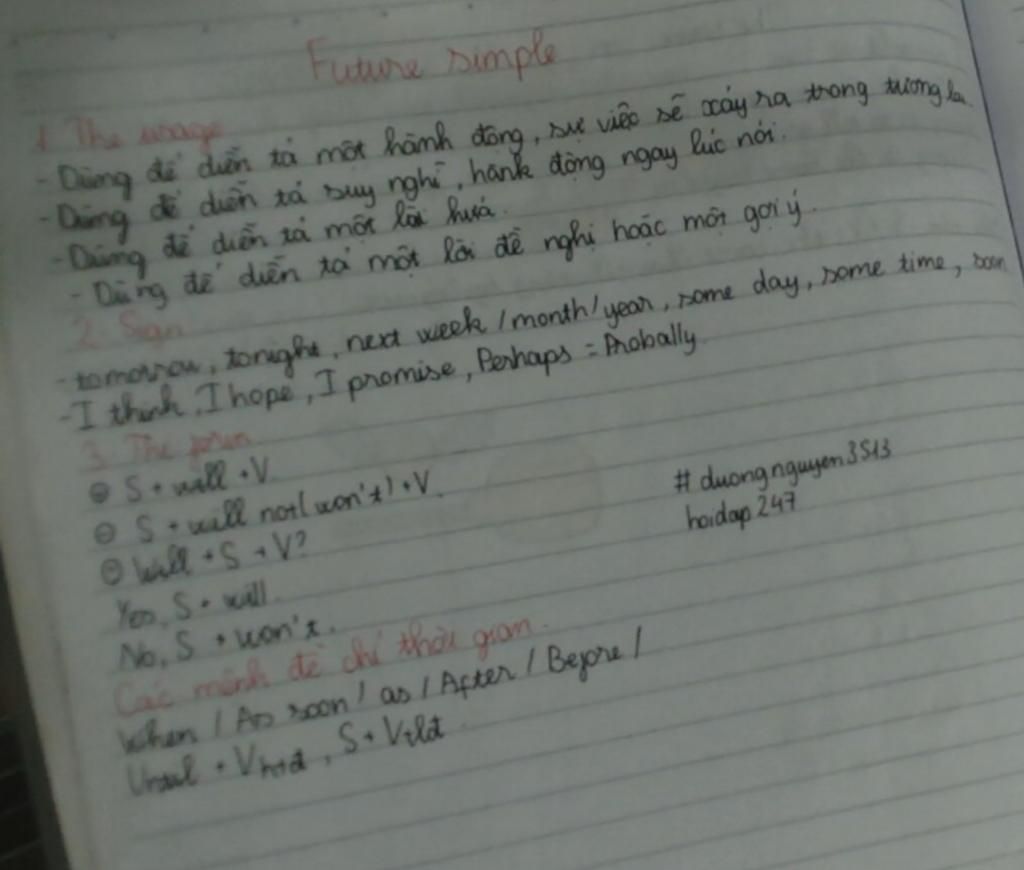 Future simple
1. The usage
- Dùng để diễn tả một hành động, sự việc sẽ xảy ra trong tương lai
- Dùng để diễn tả suy nghĩ, hành động ngay lúc nói.
- Dùng để diễn tả một lời hứa.
- Dùng để diễn tả một lời đề nghị hoặc một gợi ý.
2. Sign
- tomorrow, tonight, next week / month / year, some day, some time, soon
- I think, I hope, I promise, Perhaps = Probally
3. The form
⊕ S + will + V
⊖ S + will not (won't) + V
# duongnguyen3513
hoidap247
Will + S + V?
Yes, S + will.
No, S + won't.
Các mệnh đề chỉ thời gian.
When / As soon / as / After / Before /
Until + Vhtđ, S + Vtlđ